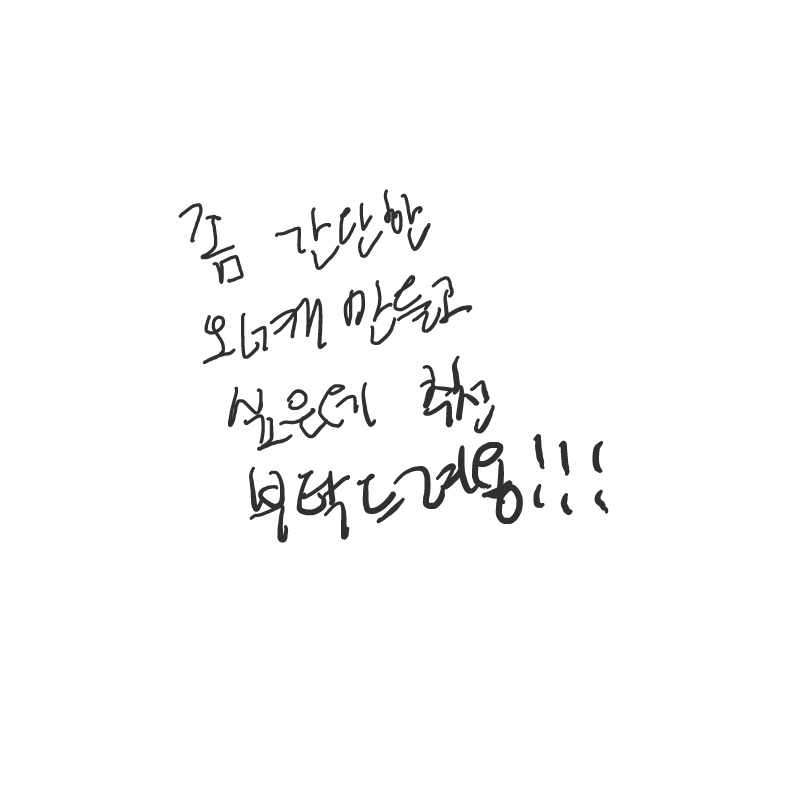 좀 간단한
오너캐 만들고
싶은데 컥션
부탁드려용!!!